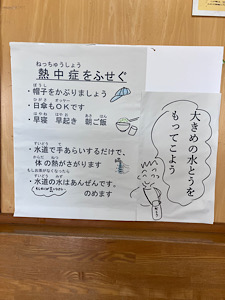 ねっちゅうしょう
熱中症をふせぐ
ぼうし
・帽子をかぶりましょう
ひがさ オッケー
・日傘もOKです
はやね はやお あさ はん
・早寝 早起き 朝ご飯
すいどう て
・水道で手あらいするだけで、
からだ ねつ
体の熱がさがります
もしお水がなくなったら
すいどう みず
・水道の水はあんぜんです。
のめます
大きめの水とうを
もってこよう